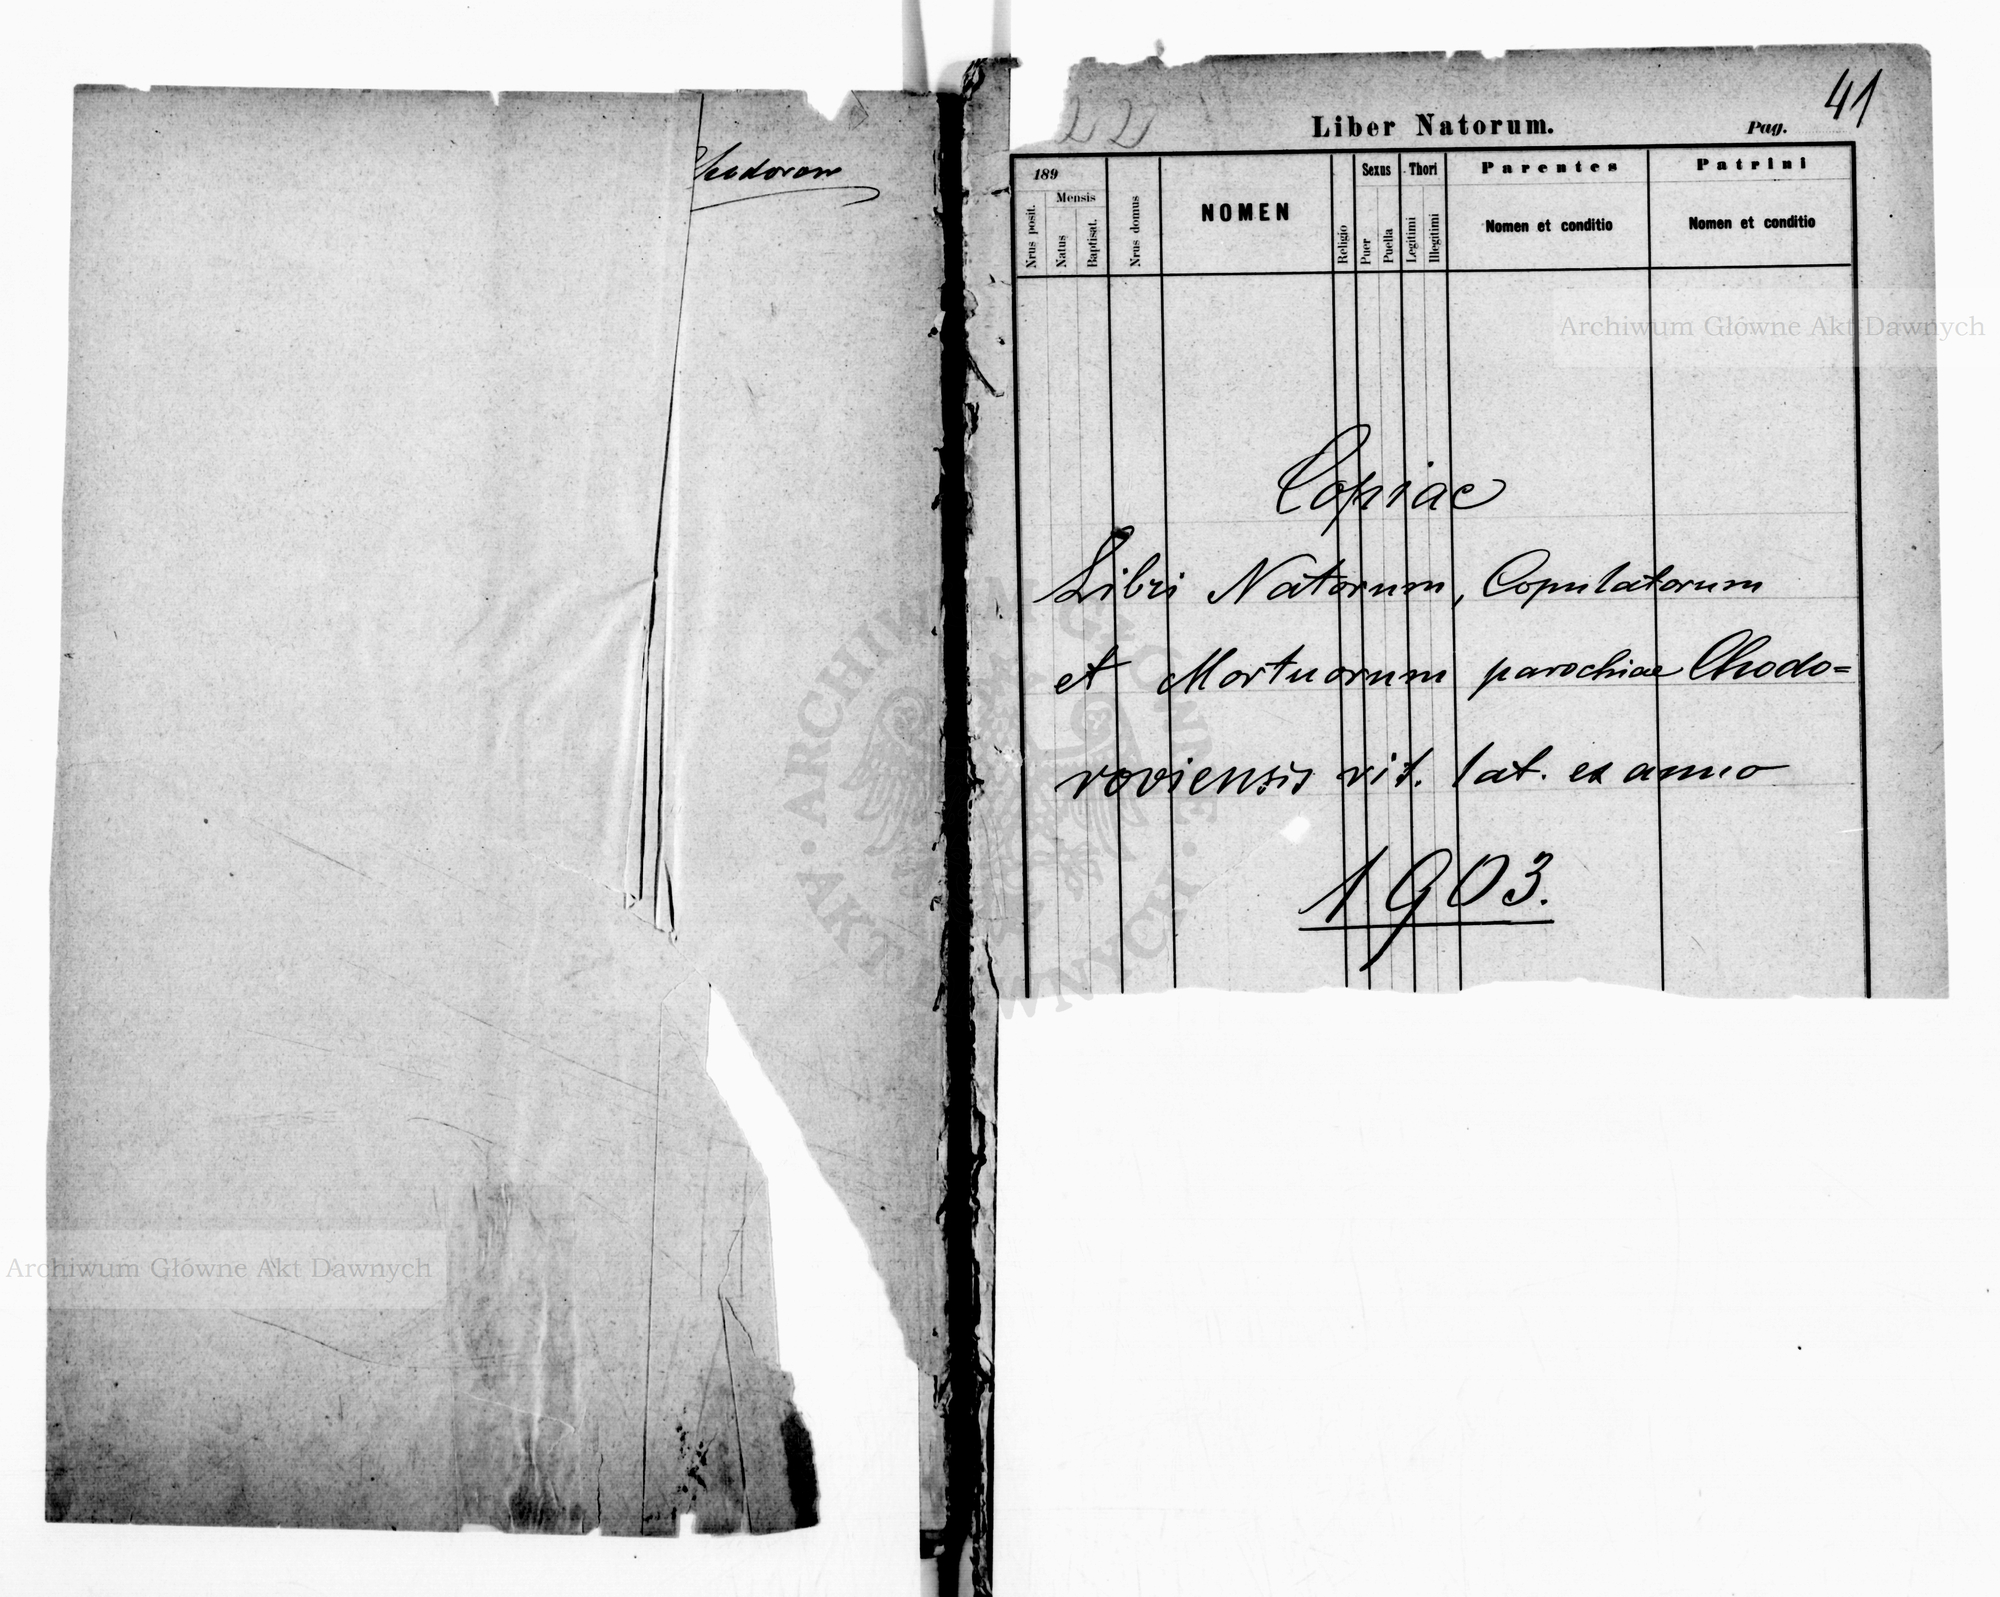 22
41
Liber Natorum.
Pag.
189
Mensis
Nrus posit.
Natus
Baptisat.
Nrus domus
NOMEN
Religio
Sexus
Puer
Puella
Thori
Legitimi
Illegitimi
Parentes
Nomen et conditio
Patrini
Nomen et conditio
Archiwum Główne Akt Dawnych
Copiae
Libri Natorum, Copulatorum
et Mortuorum parochiae Chodo=
roviensis rit. lat. ex anno
1903.
ARCHIWUM GŁÓWNE
AKT DAWNYCH
Archiwum Główne Akt Dawnych